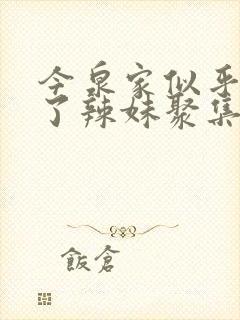 今泉家似乎
了辣妹聚集
飯倉